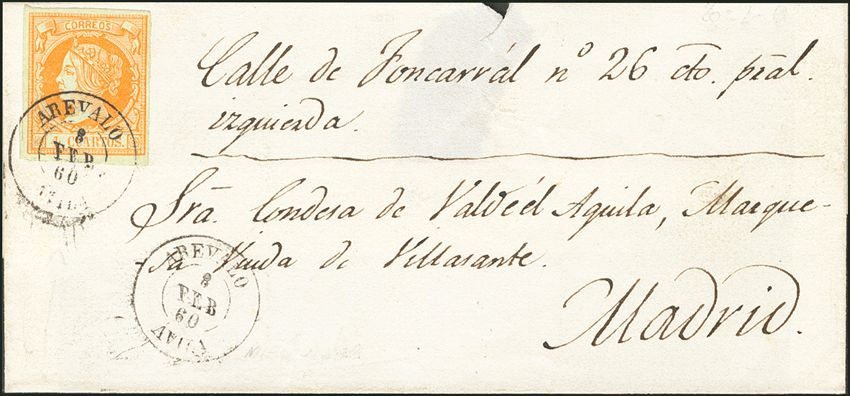 CORREOS
CUARTOS.
AREVALO
8
FEB
60
AVILA
Calle de Foncarrál nº 26 cto. pral.
izquierda.
Sra. Condesa de Valdeél Aguila, Marque-
sa Viuda de Villasante.
Madrid.
AREVALO
8
FEB
60
AVILA